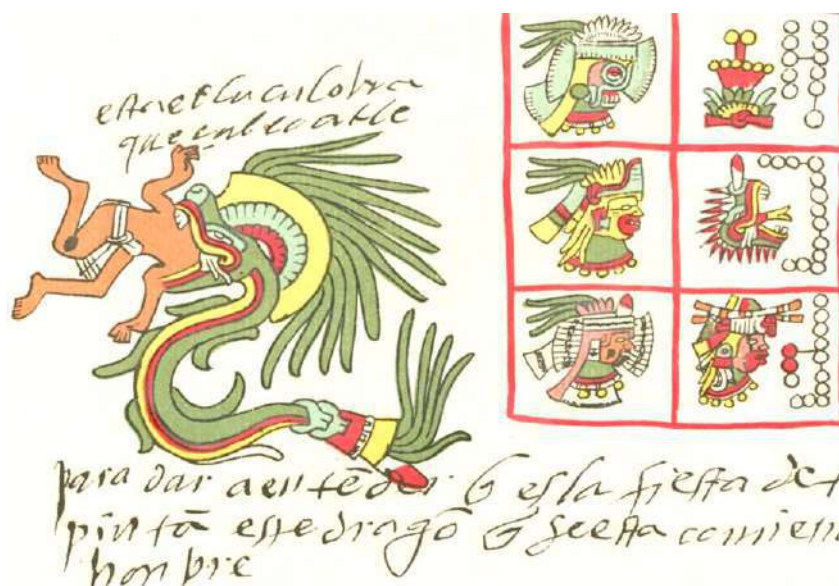 esta es la culobra
que
para dar a entēder q̃ es la fiesta de t
pintā este dragō q̃ se esta comien
honbre